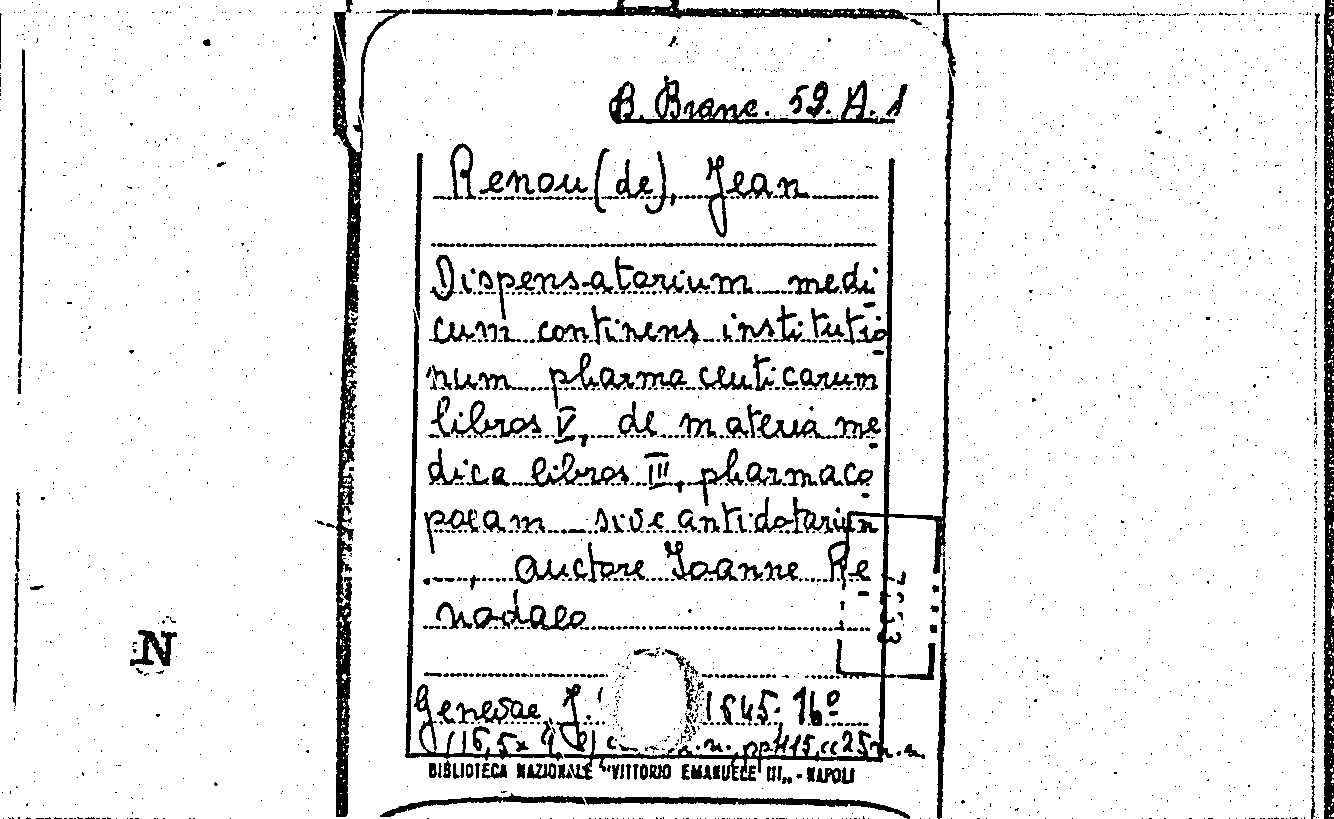 B. Branc. 52. A. 1
Renou (de), Jean
Dispensatorium medi
cum continens institutio
num pharmaceuticarum
libros V, de materia me
dica libros III, pharmaco
poeam sive antidotarium
..., auctore Joanne Re
nodaeo
N
Genevae, J. 1645. 16º
n.n., pp 415, cc 25 n.n.
BIBLIOTECA NAZIONALE "VITTORIO EMANUELE III" - NAPOLI